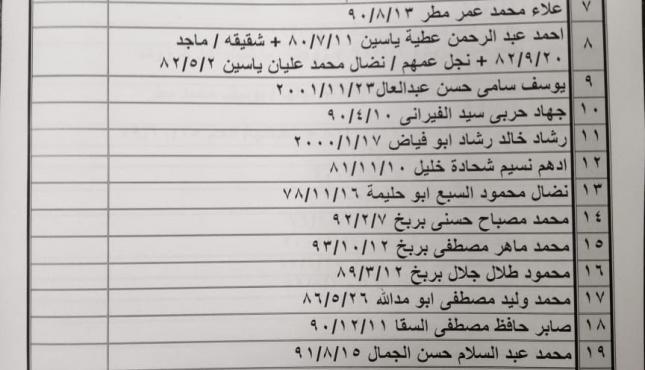 ٧ علاء محمد عمر مطر ٩٠/٨/١٣
٨ احمد عبد الرحمن عطية ياسين ٨٠/٧/١١ + شقيقه / ماجد
٨٢/٩/٢٠ + نجل عمهم / نضال محمد عليان ياسين ٨٢/٥/٢
٩ يوسف سامى حسن عبدالعال ٢٠٠١/١١/٢٣
١٠ جهاد حربى سيد الفيرانى ٩٠/٤/١٠
١١ رشاد خالد رشاد ابو فياض ٢٠٠٠/١/١٧
١٢ ادهم نسيم شحادة خليل ٨١/١١/١٠
١٣ نضال محمود السبع ابو حليمة ٧٨/١١/١٦
١٤ محمد مصباح حسنى بربخ ٩٢/٢/٧
١٥ محمد ماهر مصطفى بربخ ٩٣/١٠/١٢
١٦ محمود طلال جلال بربخ ٨٩/٣/١٢
١٧ محمد وليد مصطفى ابو مدالله ٨٦/٥/٢٦
١٨ صابر حافظ مصطفى السقا ٩٠/١٢/١١
١٩ محمد عبد السلام حسن الجمال ٩١/٨/١٥